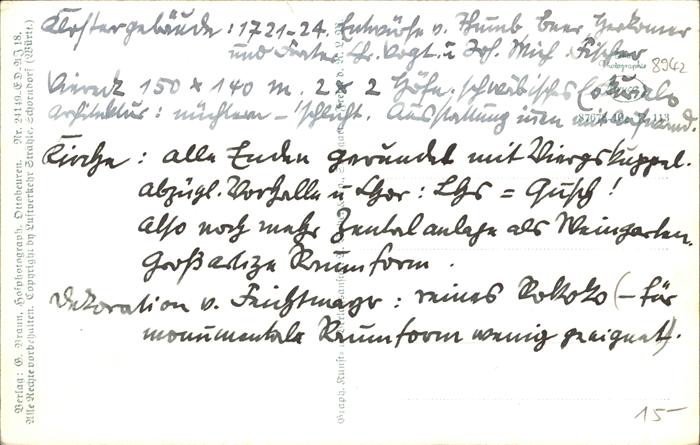 Klostergebäude: 1721-24. Entwürfe v. Thumb Beer Herkomer
und Frater Chr. Vogt. u Joh. Mich Fischer
8942
Viereck 150 x 140 m. 2 x 2 Höfe. schwäbisches
architektur: nüchtern - schlicht. Ausstattung innen
Kirche: alle Enden gerundet mit Vierungskuppel.
abzügl. Vorhalle u Chor: Lhs = Qusch!
also noch mehr Zentralanlage als Weingarten.
Großartige Raumform.
Dekoration v. Feichtmayr: reines Rokoko (- für
monumentale Raumform wenig geeignet).
15-
Verlag: G. Braun, Hofphotograph, Ottobeuren. Nr. 24149. E.D. N.J 18.
Alle Rechte vorbehalten. Copyright by Luftverkehr Strähle, Schorndorf (Württ.)
Graph. Kunst- u. Verlags